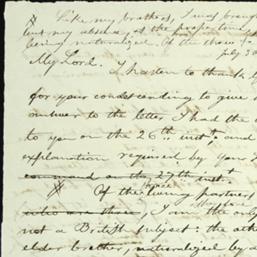 Like my brothers, I was brough
but my absence, at the proper time
being naturalized. of the above
July 3
My Lord.
I hasten to thank y
for your condescending to give a
answer to the letter I had the
to you on the 26th inst and
explanation required by your L
command on the 27th inst
Of the living partners
who are three, I am the only
not a British subject: the oth
elder brother, naturalized by a